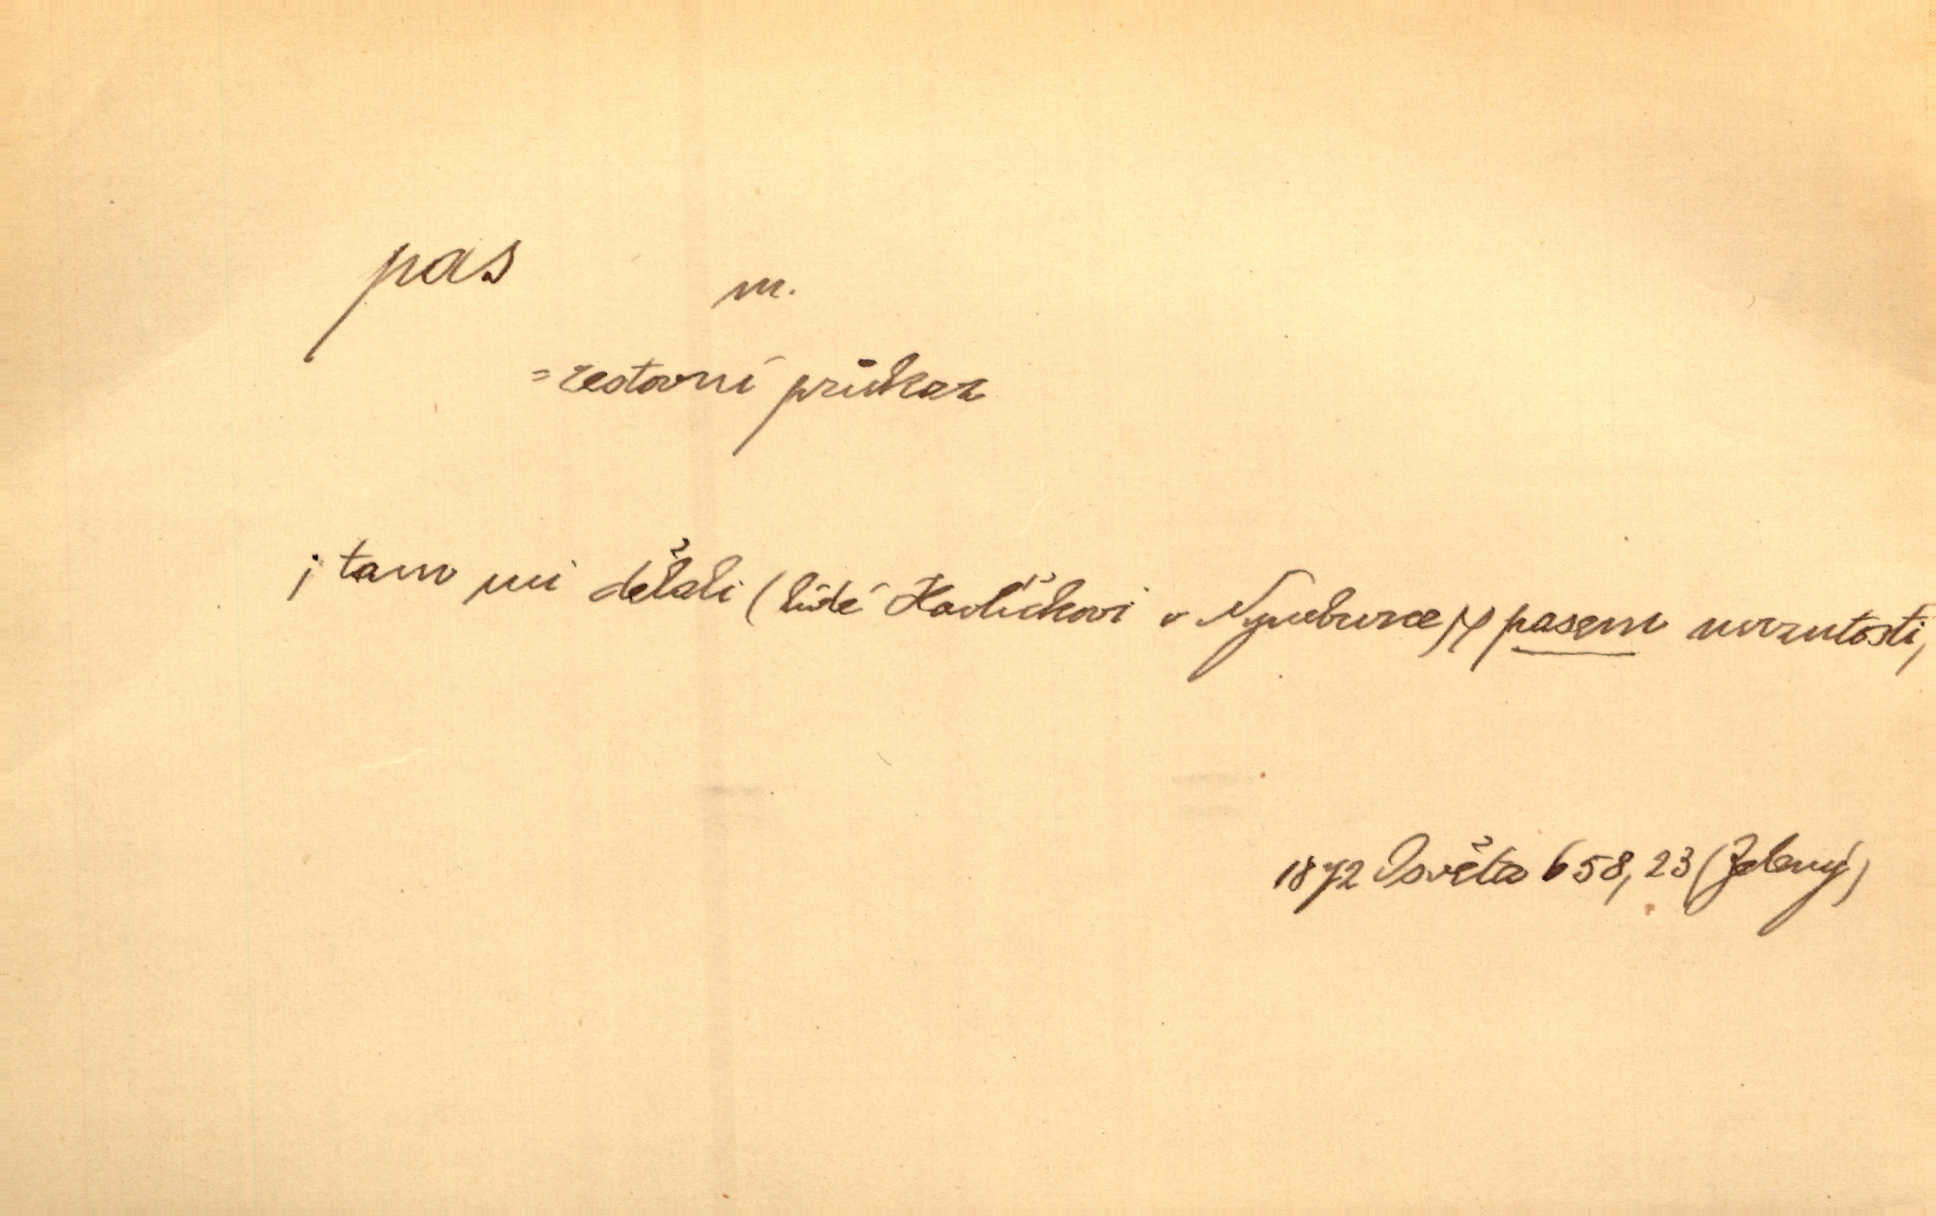 pas m.
= cestovní průkaz
i tam mi dělali (lidé Havlíčkovi v Nymburce) s pasem mrzutosti,
1872 Osvěta 658, 23 (Zelený)